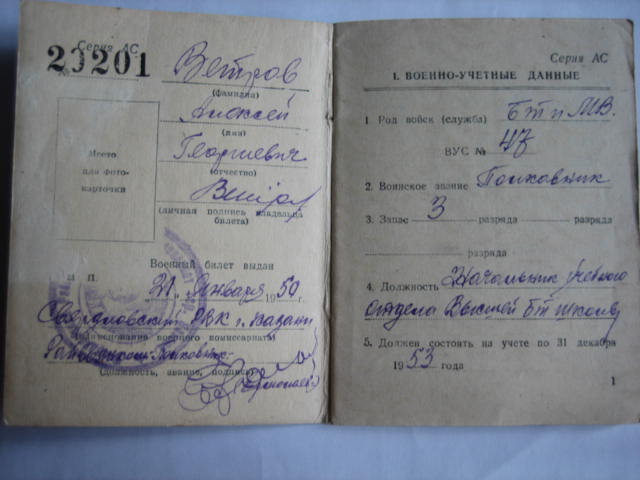 Серия АС
29201
Ветров
(фамилия)
Алексей
(имя)
Георгиевич
(отчество)
(личная подпись владельца
билета)
Место
для фото-
карточки
М П.
Военный билет выдан
21 января 1950
Свердловский РВК г. Казани
(наименование военного комиссариата)
(должность, звание, подпись)
Серия АС
1. ВОЕННО-УЧЕТНЫЕ ДАННЫЕ
1 Род войск (служба) БТ и МВ.
ВУС № 47
2. Воинское звание Полковник
3. Запас 3 разряда разряда
разряда
4. Должность Начальник учебного
отдела Высшей бт школы
5. Должен состоять на учете по 31 декабря
1953 года
1